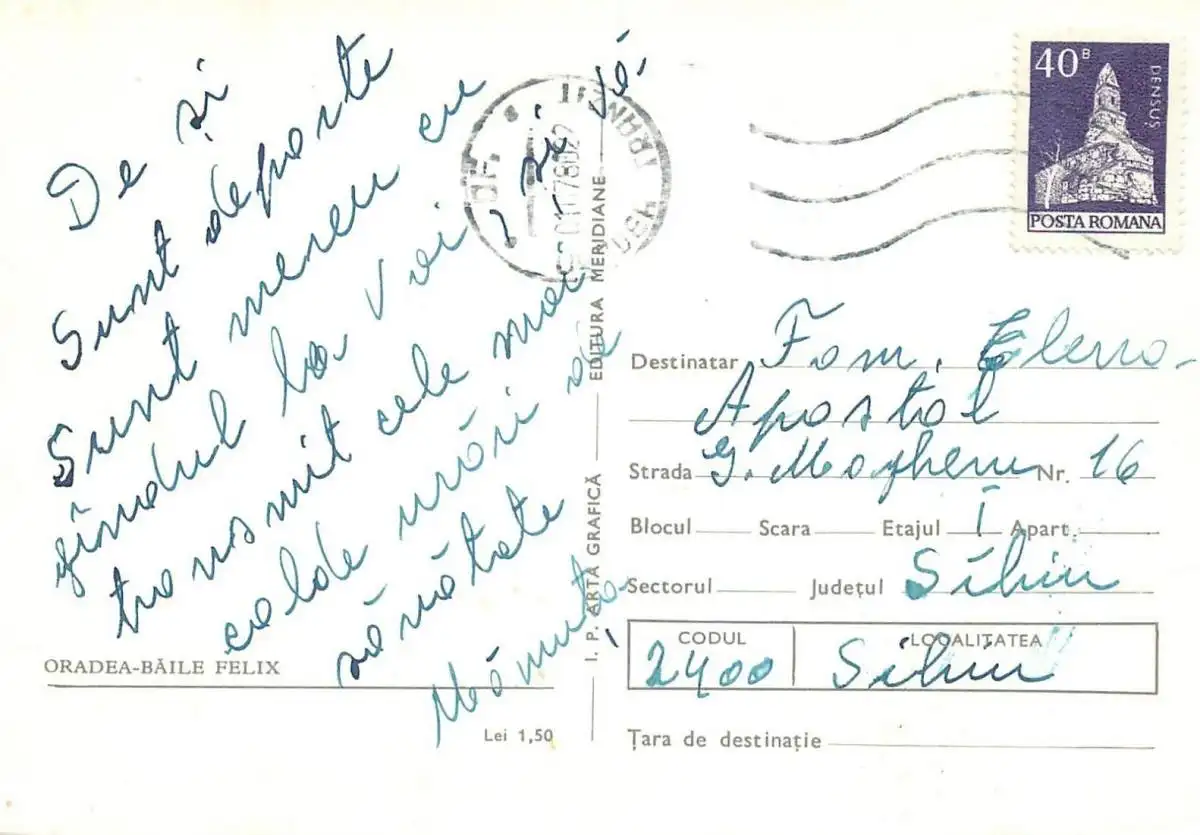 De și
Sunt departe
Sunt mereu cu
gîndul la Voi și vă
transmit cele mai
calde urări de
sănătate
Mămuța
ORADEA-BĂILE FELIX
Lei 1,50
I. P. ARTA GRAFICĂ EDITURA MERIDIANE
40 B
DENSUȘ
POSTA ROMANA
Destinatar Fam. Elena
Apostol
Strada G. Magheru Nr. 16
Blocul Scara Etajul I Apart.
Sectorul Județul Sibiu
CODUL LOCALITATEA
2400 Sibiu
Țara de destinație